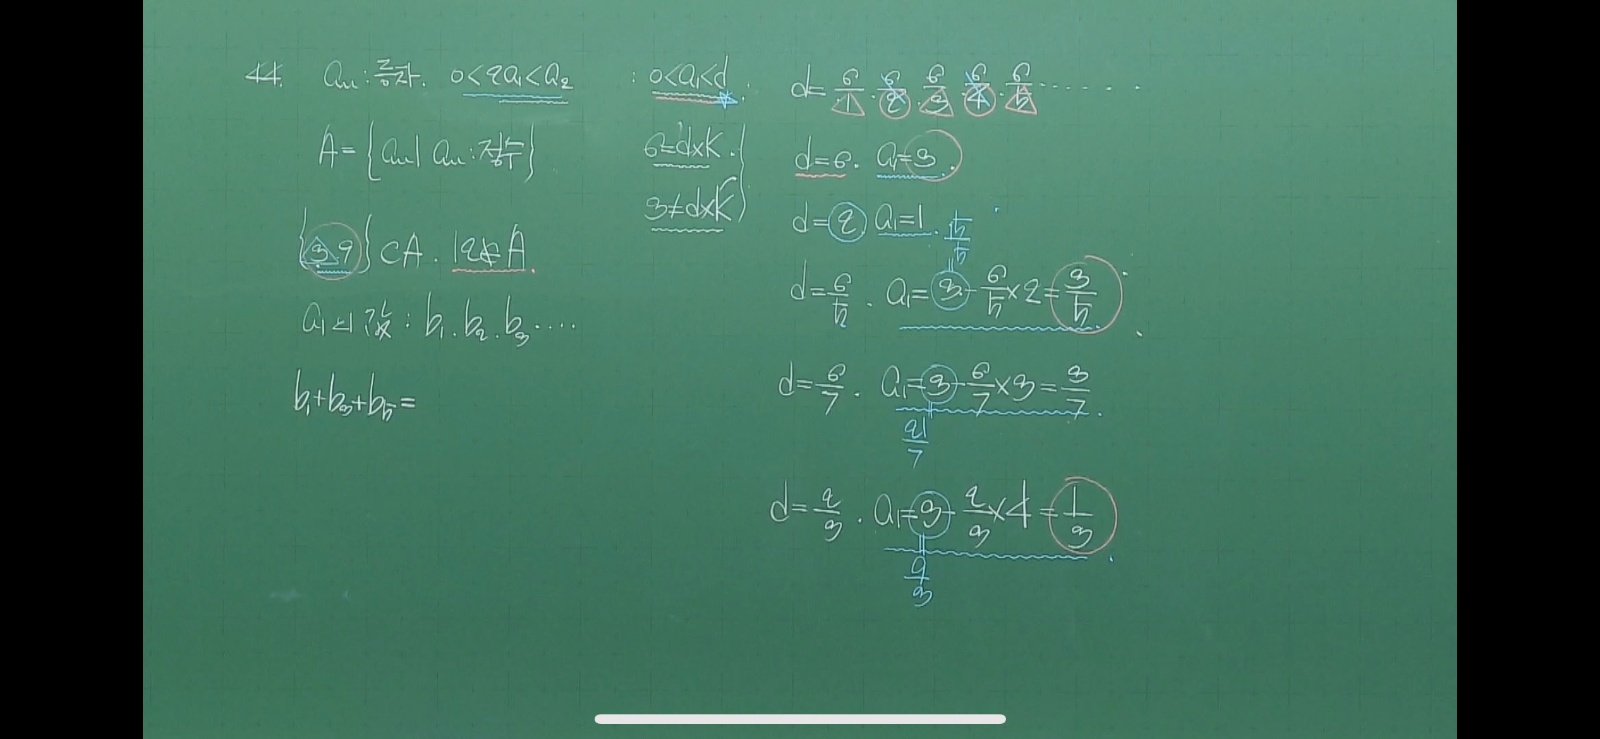 44. an : 등차. 0<2a1<a2 : 0<a1<d.
A = { an | an : 정수 }
{3, 9} ⊂ A. 12 ∉ A.
a1의 값 : b1. b2. b3 ....
b1+b3+b5=
6=d×K.
3≠d×K
d= 6/1 . 6/2 . 6/3 . 6/4 . 6/5 ......
d=6. a1=3.
d=2 a1=1.
15/5
d=6/5 . a1= 3 - 6/5 ×2 = 3/5
d=6/7 . a1=3 - 6/7 ×3 = 3/7 .
21/7
d=2/3 . a1=3 - 2/3 ×4 = 1/3 .
9/3